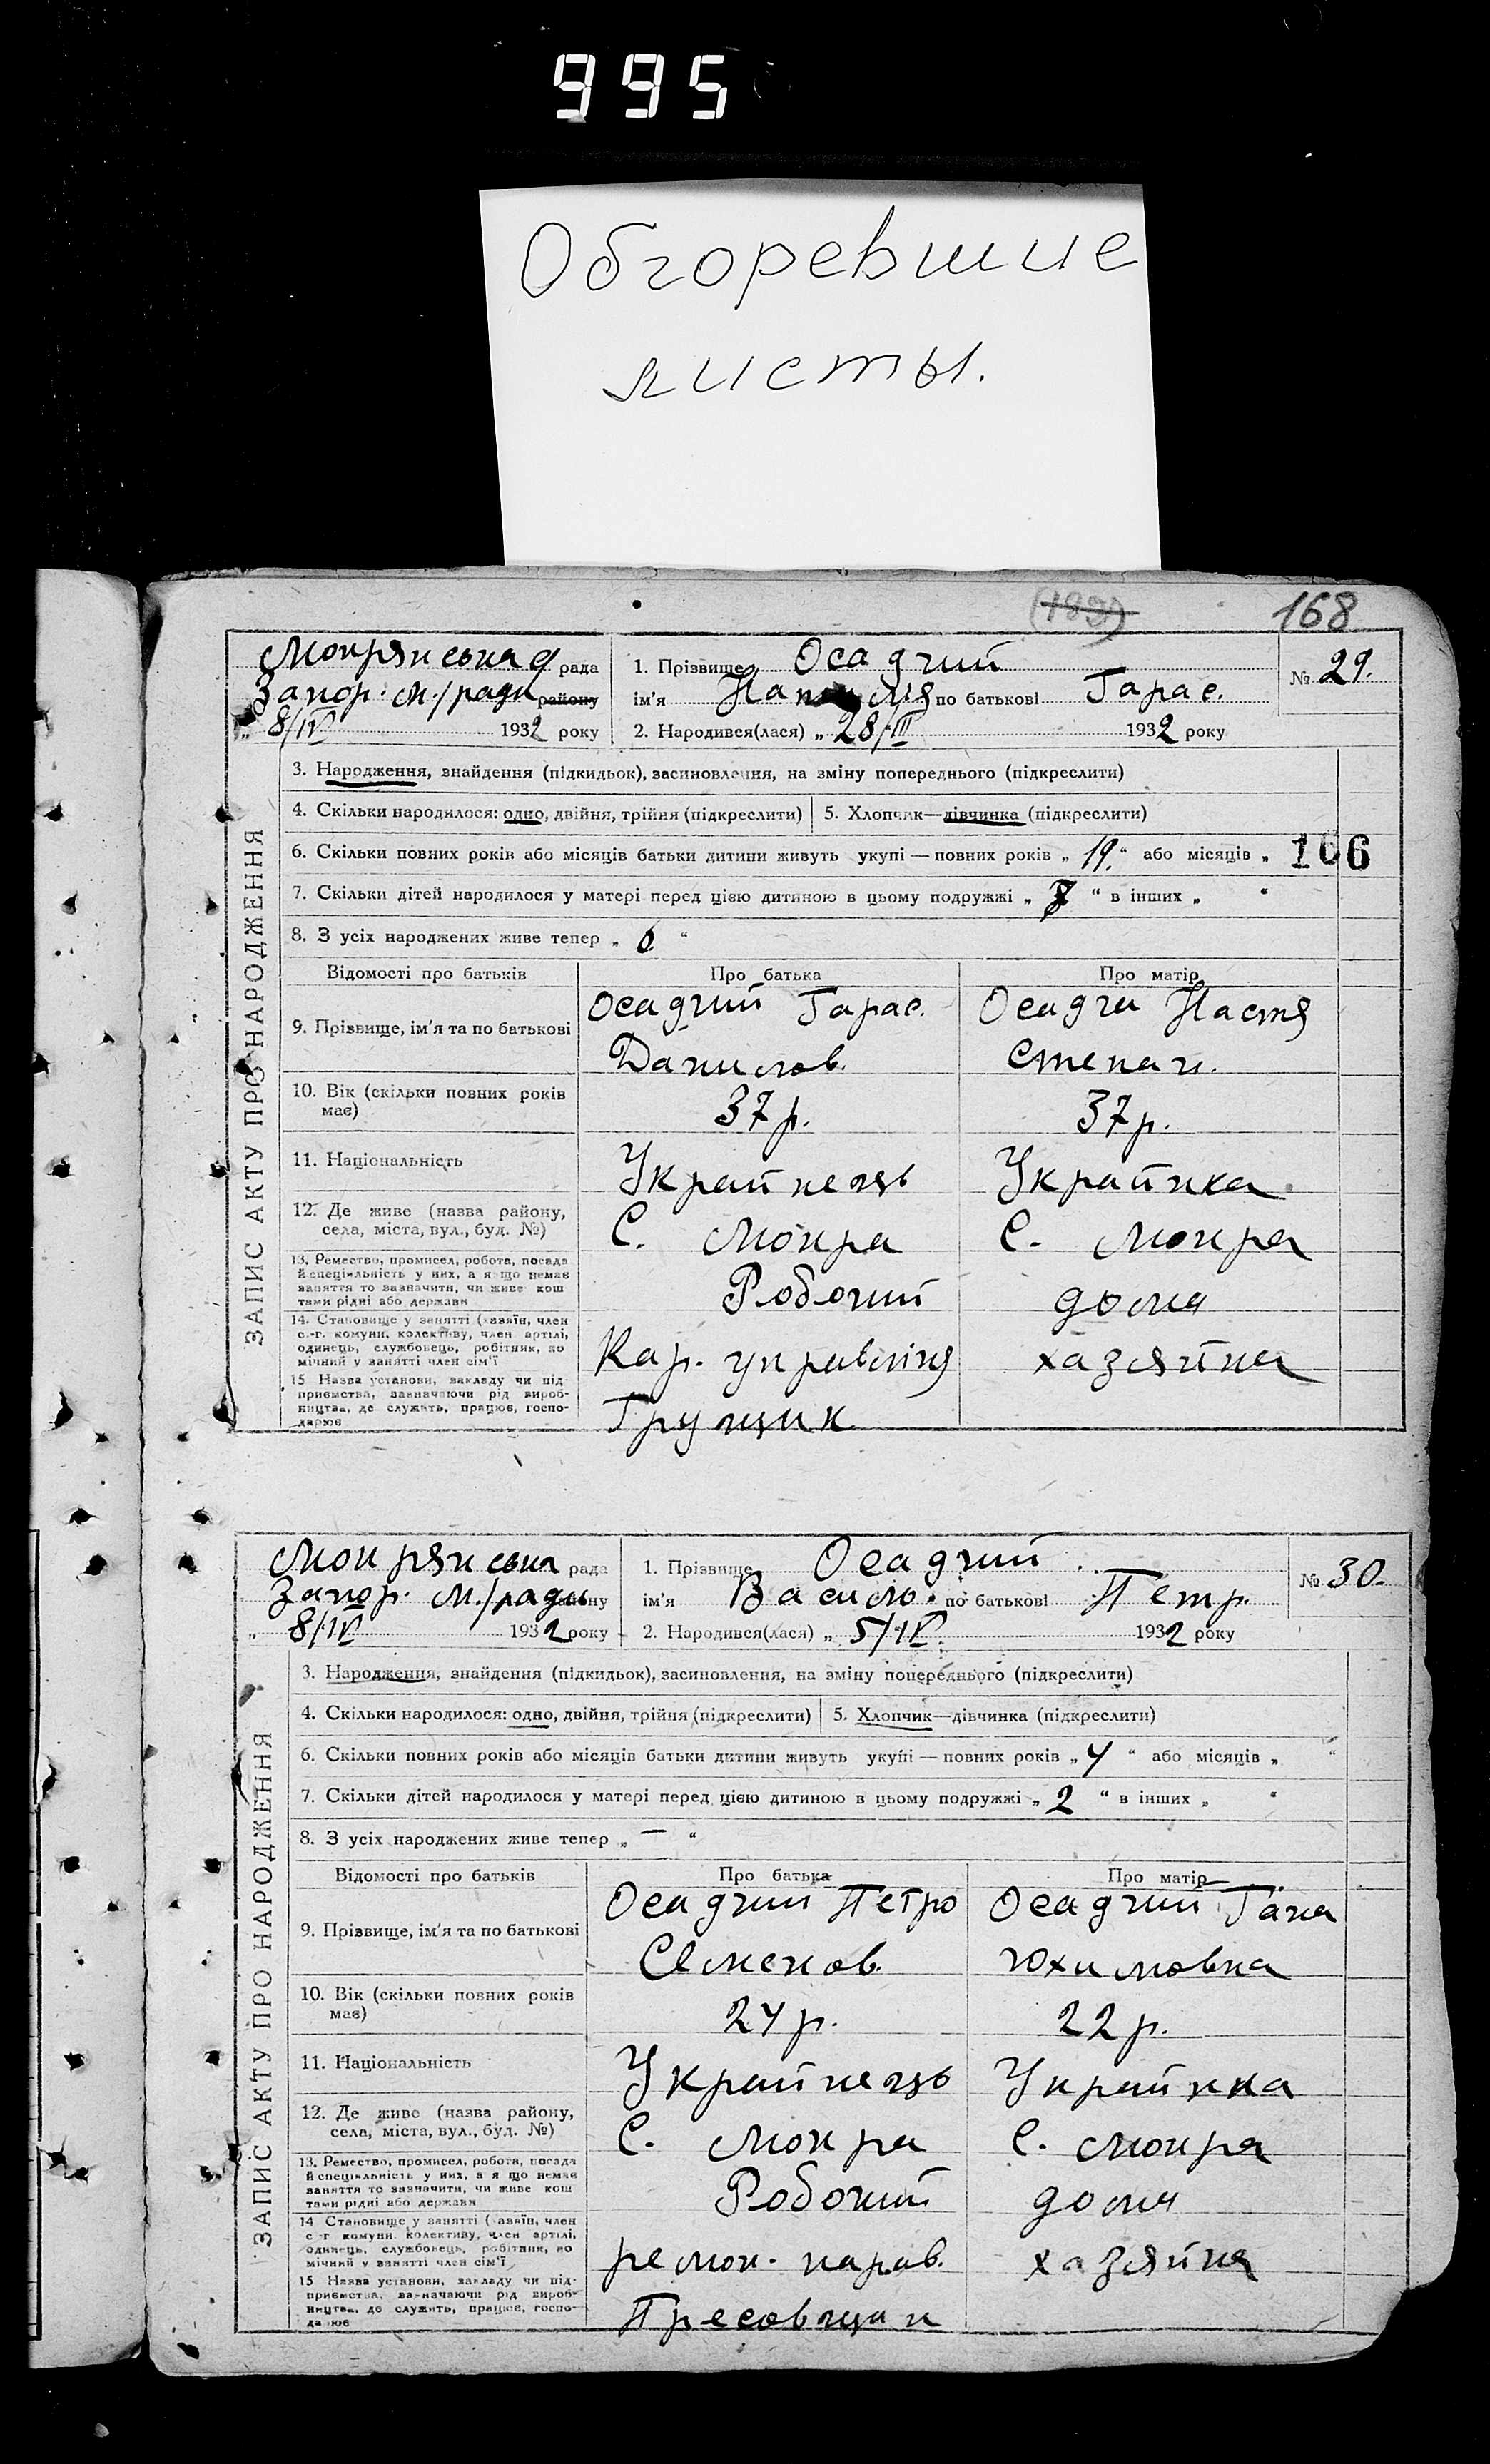 995
Обгоревшие
листы.
168
Мокрянська рада
Запор. м./ради району
„ 8/IV 1932 року
1. Прізвище Осадчий
ім'я по батькові Тарас.
№ 29.
2. Народився(лася) „ 28/III 1932 року
3. Народження, знайдення (підкидьок), засиновлення, на зміну попереднього (підкреслити)
4. Скільки народилося: одно, двійня, трійня (підкреслити) 5. Хлопчик—дівчинка (підкреслити)
6. Скільки повних років або місяців батьки дитини живуть укупі — повних років „ 19. “ або місяців „
106
7. Скільки дітей народилося у матері перед цією дитиною в цьому подружжі „ “ в інших „ “
8. З усіх народжених живе тепер „ 6 “
Відомості про батьків Про батька Про матір
9. Прізвище, ім'я та по батькові
Осадчий Тарас. Осадча Настя
Данилов. Степан.
10. Вік (скільки повних років має)
37 р. 37 р.
11. Національність
Українець Українка
12. Де живе (назва району, села, міста, вул., буд. №)
С. Мокра С. Мокра
13. Ремество, промисел, робота, посада й спеціяльність у них, а якщо немає заняття то зазначити, чи живе коштами рідні або держави
Робочий домя
14. Становище у занятті (хазяїн, член с.-г. комуни, колективу, член артілі, одинець, службовець, робітник, помічний у занятті член сім'ї
Кар. управління хазяйка
15 Назва установи, закладу чи підприємства, зазначаючи рід виробництва, де служить, працює, господарює
Грущик
ЗАПИС АКТУ ПРО НАРОДЖЕННЯ
Мокрянська рада
Запор. м./ради району
„ 8/IV 1932 року
1. Прізвище Осадчий
ім'я Василь. по батькові Петр.
№ 30.
2. Народився(лася) „ 5/IV. 1932 року
3. Народження, знайдення (підкидьок), засиновлення, на зміну попереднього (підкреслити)
4. Скільки народилося: одно, двійня, трійня (підкреслити) 5. Хлопчик—дівчинка (підкреслити)
6. Скільки повних років або місяців батьки дитини живуть укупі — повних років „ 4 “ або місяців „ “
7. Скільки дітей народилося у матері перед цією дитиною в цьому подружжі „ 2 “ в інших „ “
8. З усіх народжених живе тепер „ — “
Відомості про батьків Про батька Про матір
9. Прізвище, ім'я та по батькові
Осадчий Петро Осадчий Гана
Семенов. Юхимовна
10. Вік (скільки повних років має)
24 р. 22 р.
11. Національність
Українець Українка
12. Де живе (назва району, села, міста, вул., буд. №)
С. Мокра С. Мокра
13. Ремество, промисел, робота, посада й спеціяльність у них, а якщо немає заняття то зазначити, чи живе коштами рідні або держави
Робочий домя
14 Становище у занятті (хазяїн, член с-г комуни, колективу, член артілі, одинець, службовець, робітник, помічний у занятті член сім'ї
ремон. парав. хазяйка
15 Назва установи, закладу чи підприємства, зазначаючи рід виробництва, де служить, працює, господарює
Пресовщик
ЗАПИС АКТУ ПРО НАРОДЖЕННЯ